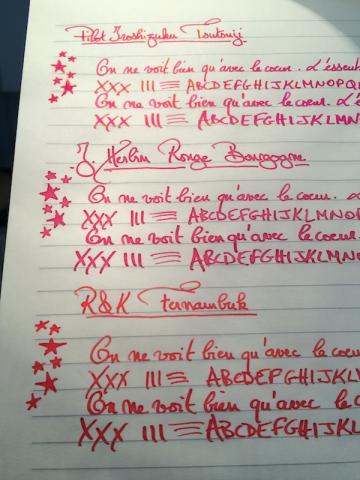 Pilot Iroshizuku Tsutsuji
On ne voit bien qu'avec le coeur. L'essent
XXX III ≡ ABCDEFGHIJKLMNOPQ
On ne voit bien qu'avec le coeur. L'e
XXX III ≡ ABCDEFGHIJKLMNO
J. Herbin Rouge Bourgogne
On ne voit bien qu'avec le coeur.
XXX III ≡ ABCDEFGHIJKLMNO
On ne voit bien qu'avec le coeur.
XXX III ≡ ABCDEFGHIJKLM
R&K Fernambuk
On ne voit bien qu'avec le coeu
XXX III ≡ ABCDEFGHIJKLM
On ne voit bien qu'avec le c
XXX III ≡ ABCDEFGHIJKL